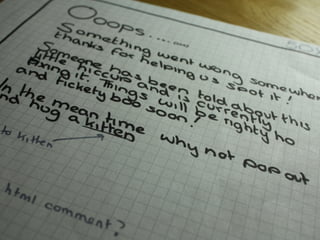 Ooops........
Something went wrong somewhere
thanks for helping us spot it!
Someone has been told about this
little hiccup and is currently
fixing it. Things will be righty ho
and tickety boo soon!
In the mean time why not pop out
and hug a kitten
to kitten
html comment?